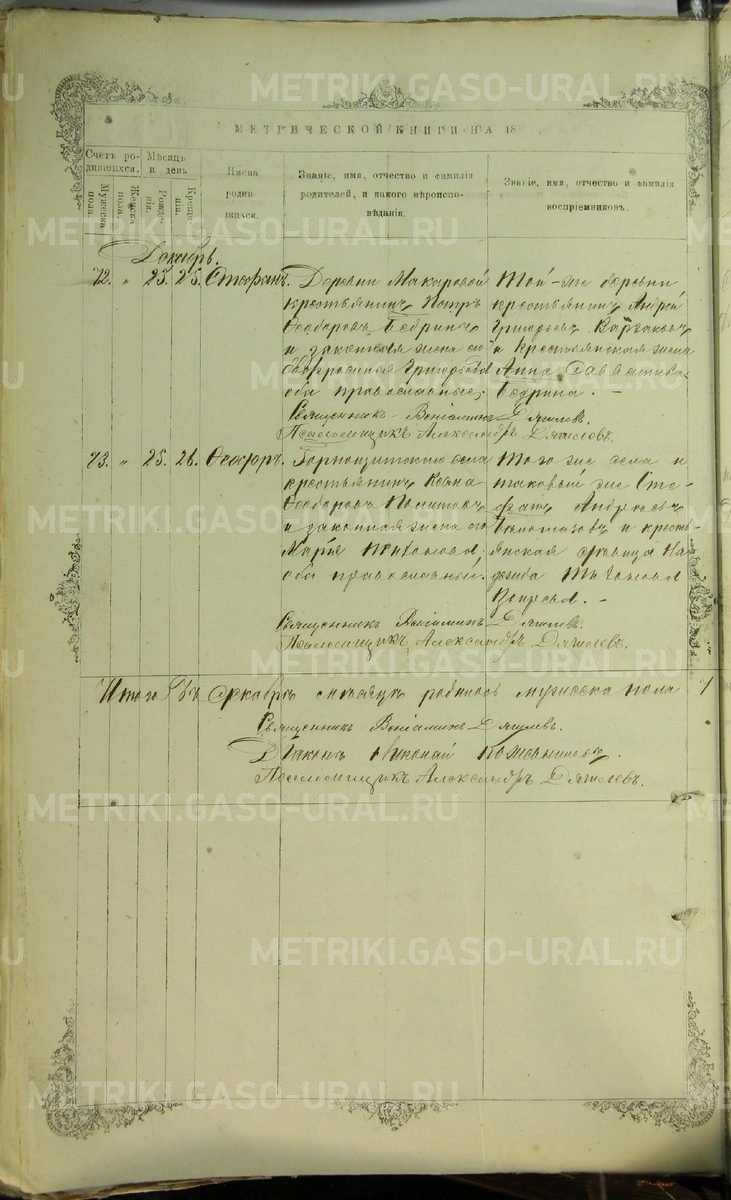 METRIKI.GASO-URAL.RU
МЕТРИЧЕСКОЙ КНИГИ НА 18
Счетъ ро-
дившихся.
Мужеска
пола.
Женска
пола.
Мѣсяцъ
и день
Рожде-
нія.
Креще-
нія.
Имена
родив-
шихся.
Званіе, имя, отчество и фамилія
родителей, и какого вѣроиспо-
вѣданія.
Званіе, имя, отчество и фамилія
воспріемниковъ.
Декабрь.
72. " 25. 25. Стефанъ.
Деревни Макаровой
крестьянинъ Петръ
Ѳеодоровъ Бедринъ
и законная жена его
Евфросинья Григорьева
оба православные.
Той-же деревни
крестьянинъ Андрей
Григорьевъ
и крестьянская жена
Анна Савватіева
Бедрина. -
Священникъ Веніаминъ Дягилевъ.
Псаломщикъ Александръ Дягилевъ.
73. " 25. 26. Ѳеодоръ.
Горнощитскаго села
крестьянинъ
Ѳеодоровъ
и законная жена его
Марія
оба православные.
Того же села и
таковый же Сте-
фанъ Андреевъ
и кресть-
янская дѣвица На-
дежда
Священникъ Веніаминъ Дягилевъ.
Псаломщикъ Александръ Дягилевъ.
Итого въ Декабрѣ мѣсяцѣ родилось мужеска пола 7
Священникъ Веніаминъ Дягилевъ.
Діаконъ Николай
Псаломщикъ Александръ Дягилевъ.